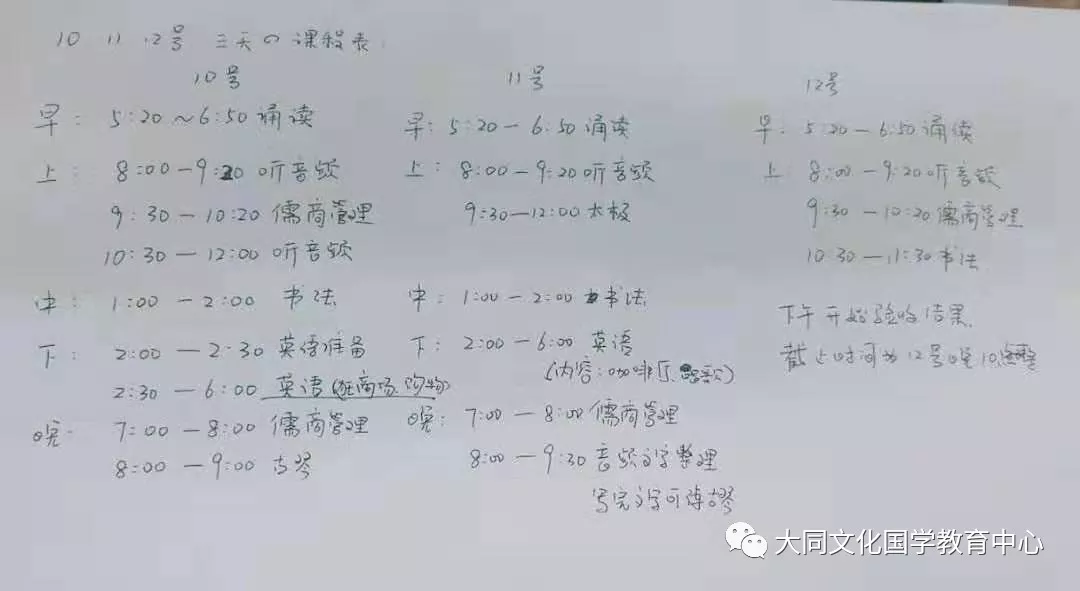 10 11 12号 三天の课程表
10号
早: 5:20~6:50 诵读
上: 8:00—9:20 听音频
9:30—10:20 儒商管理
10:30—12:00 听音频
中: 1:00—2:00 书法
下: 2:00—2:30 英语准备
2:30—6:00 英语(逛商场,购物)
晚: 7:00—8:00 儒商管理
8:00—9:00 古琴
11号
早: 5:20—6:50 诵读
上: 8:00—9:20 听音频
9:30—12:00 太极
中: 1:00—2:00 书法
下: 2:00—6:00 英语
(内容:咖啡厅、歌)
晚: 7:00—8:00 儒商管理
8:00—9:30 音频文字整理
写完文字可练古琴
12号
早: 5:20—6:50 诵读
上: 8:00—9:20 听音频
9:30—10:20 儒商管理
10:30—11:30 书法
下午开始验收结果,
截止时间为12号晚10点整
大同文化国学教育中心